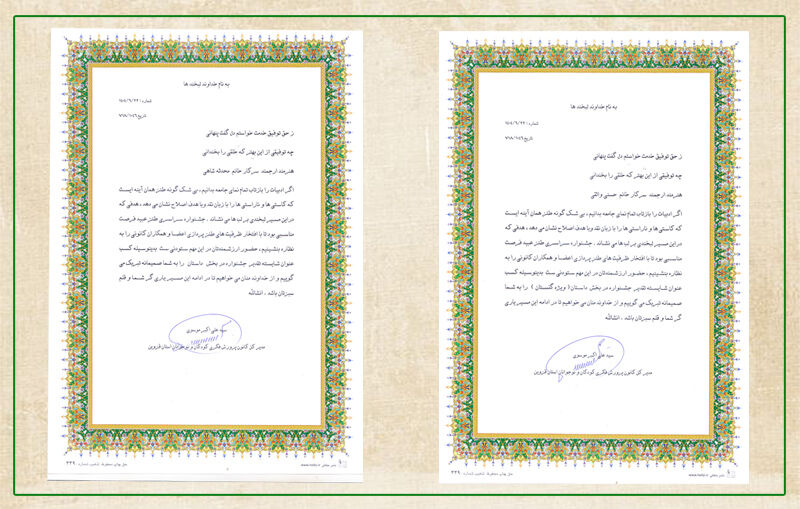 به نام خداوند لبخند ها
ز حق توفیق خدمت خواستم دل گفت پنهانی
چه توفیقی از این بهتر که خلقی را بخندانی
هنرمند ارجمند سرکار خانم محدثه شاهی
اگر ادبیات را بازتاب تمام نمای جامعه بدانیم ، بی شک گونه طنز همان آینه ایست
که کاستی ها و ناراستی ها را با زبان نقد وبا هدف اصلاح نشان می دهد ، هدفی که
دراین مسیر لبخندی بر لب ها می نشاند . جشنواره سراسری طنز عبید فرصت
مناسبی بود تا با افتخار ظرفیت های طنز پردازی اعضا و همکاران کانونی را به
نظاره بنشینیم ، حضور ارزشمندتان در این مهم ستودنی ست بدینوسیله کسب
عنوان شایسته تقدیر جشنواره در بخش داستان را به شما صمیمانه تبریک می
گوییم و از خداوند منان می خواهیم تا در ادامه این مسیر یاری گر شما و قلم
سبزتان باشد . انشالله
سید علی اکبر موسوی
مدیر کل کانون پرورش فکری کودکان و نوجوانان استان قزوین
به نام خداوند لبخند ها
ز حق توفیق خدمت خواستم دل گفت پنهانی
چه توفیقی از این بهتر که خلقی را بخندانی
هنرمند ارجمند سرکار خانم حسنی واثقی
اگر ادبیات را بازتاب تمام نمای جامعه بدانیم ، بی شک گونه طنز همان آینه ایست
که کاستی ها و ناراستی ها را با زبان نقد وبا هدف اصلاح نشان می دهد ، هدفی که
دراین مسیر لبخندی بر لب ها می نشاند . جشنواره سراسری طنز عبید فرصت
مناسبی بود تا با افتخار ظرفیت های طنز پردازی اعضا و همکاران کانونی را به
نظاره بنشینیم ، حضور ارزشمندتان در این مهم ستودنی ست بدینوسیله کسب
عنوان شایسته تقدیر جشنواره در بخش داستان ( ویژه گلستان ) را به شما
صمیمانه تبریک می گوییم و از خداوند منان می خواهیم تا در ادامه این مسیر یاری
گر شما و قلم سبزتان باشد . انشالله
سید علی اکبر موسوی
مدیر کل کانون پرورش فکری کودکان و نوجوانان استان قزوین